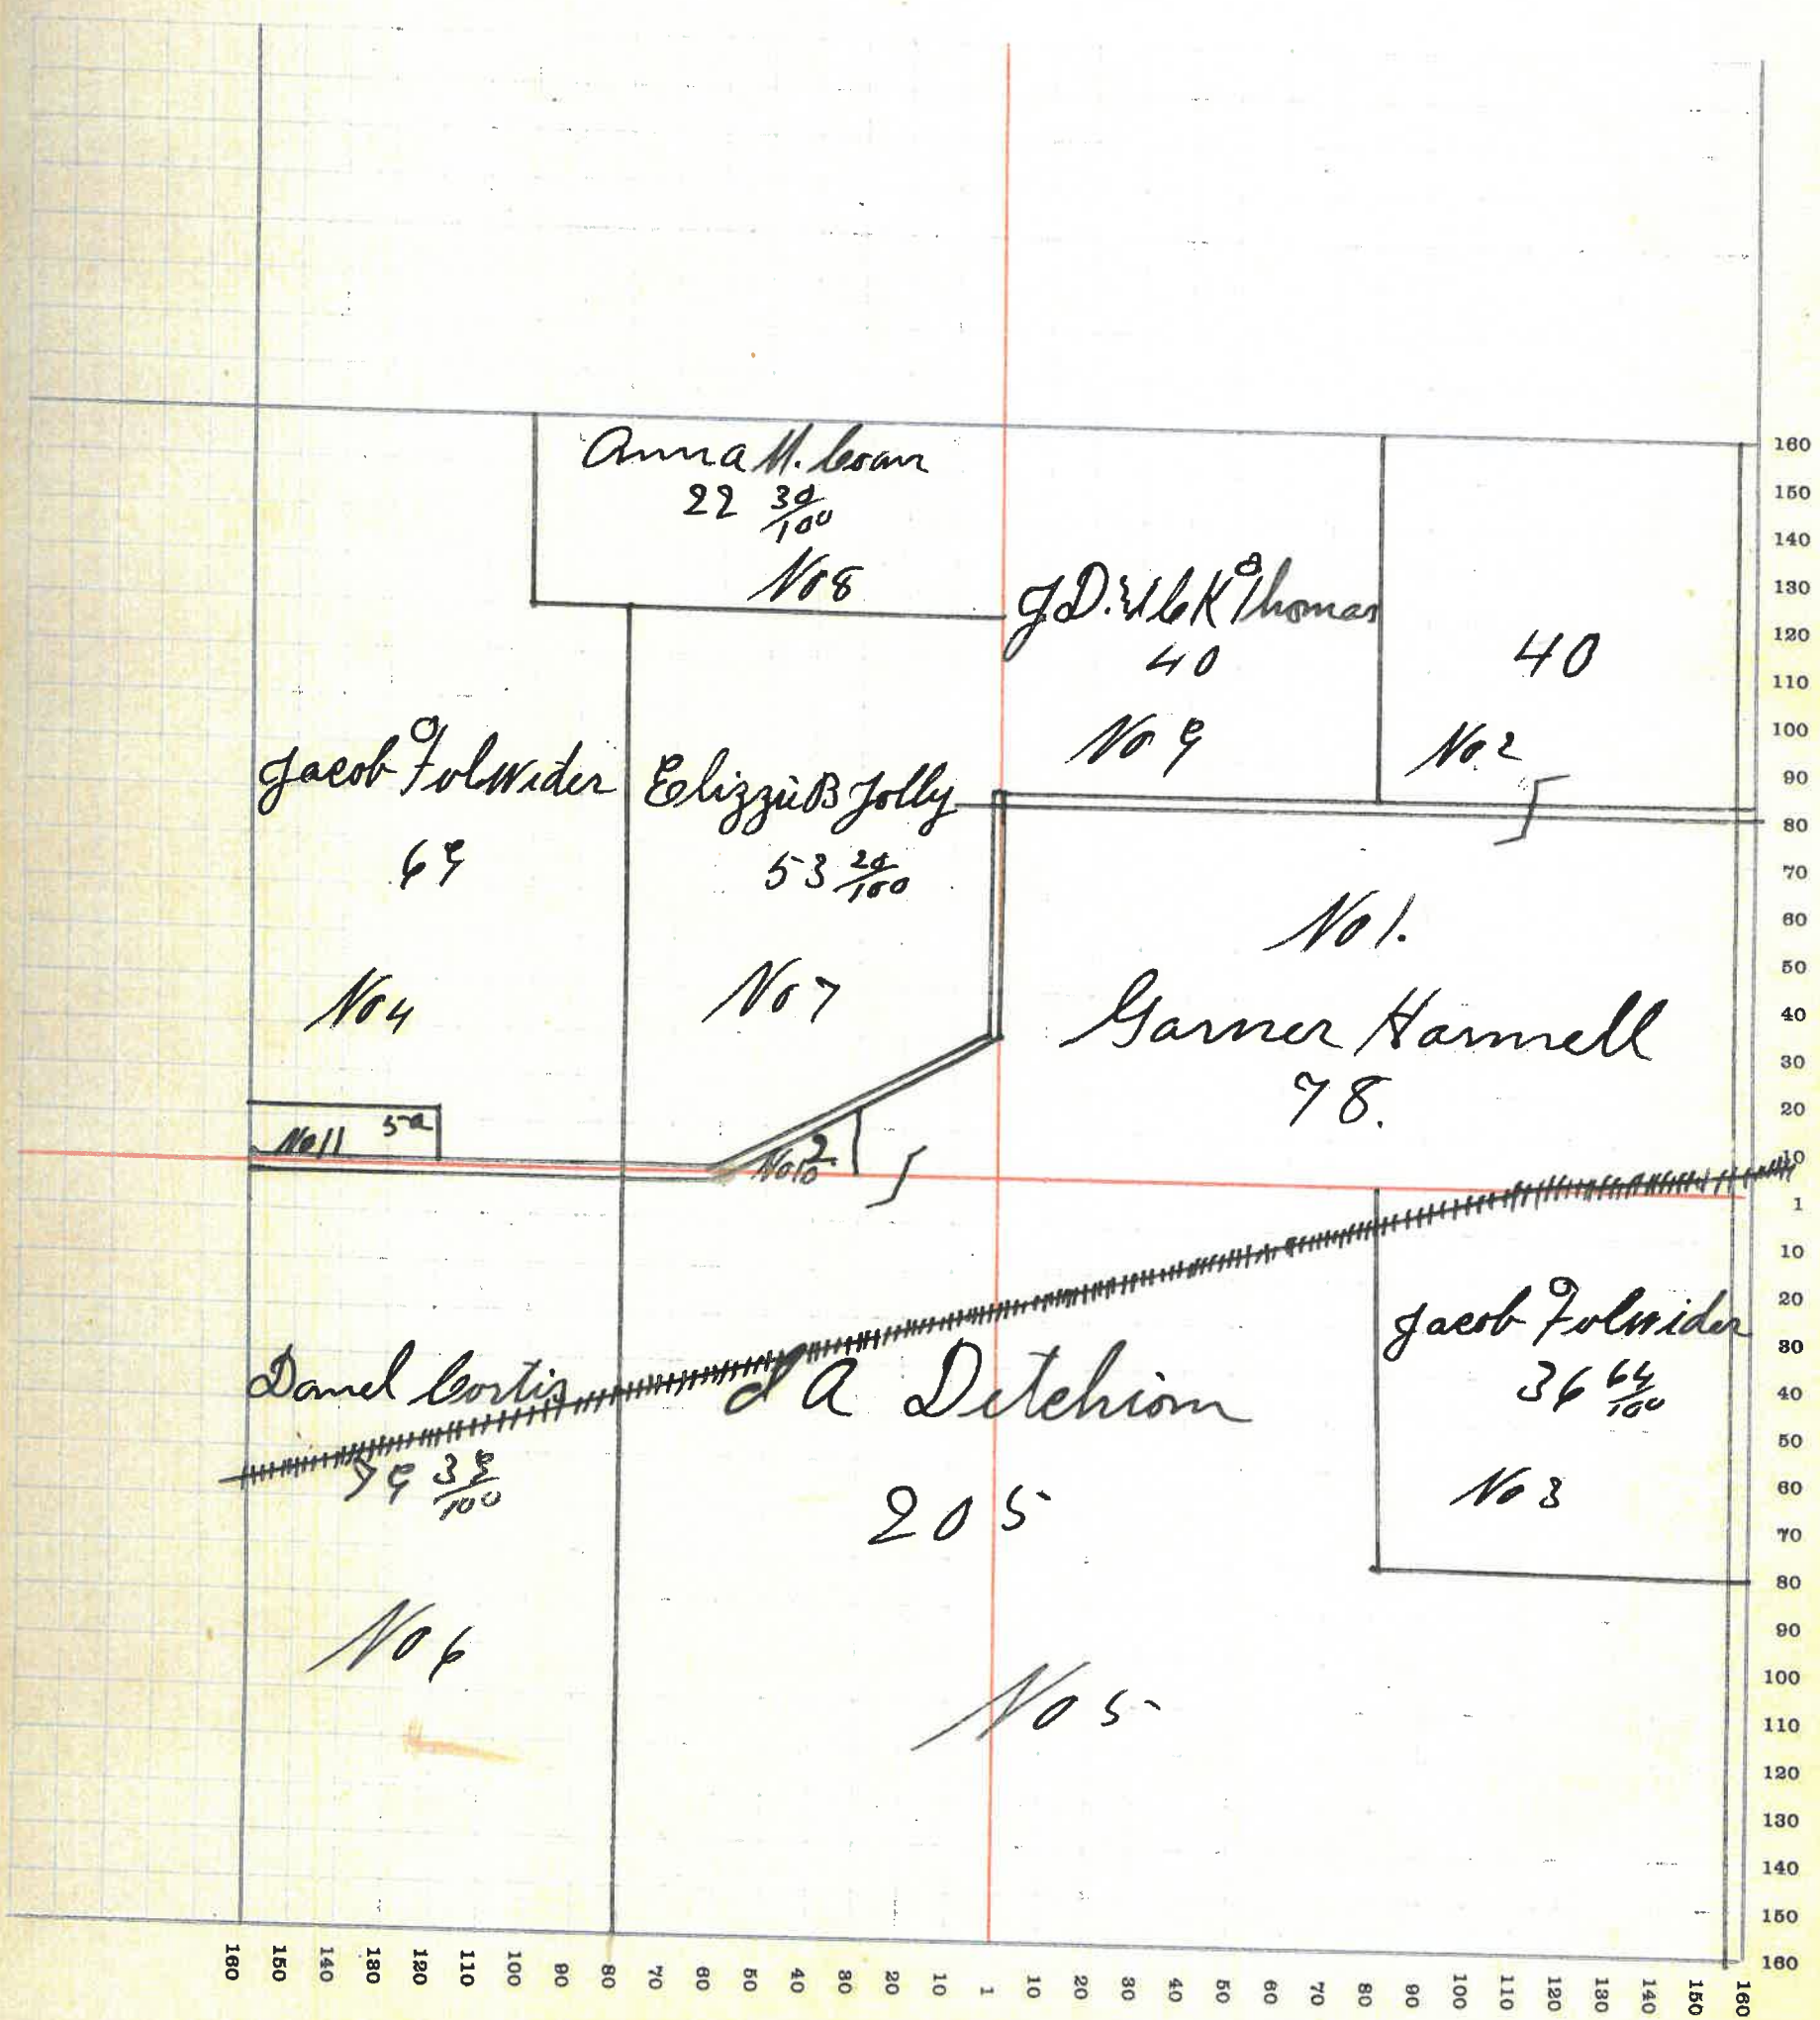 Anna M. Coan
22 30/100
No 8
J D. & C K Thomas
40
No 9
40
No 2
Jacob Fulwider
69
No 4
Elizzie B Jolly
53 20/100
No 7
No 1.
Garner Harmell
78.
No 11 5a
No 10 2
Jacob Fulwider
36 64/100
No 3
Danel Cortis
79 39/100
No 6
A Detchion
205
No 5
160
150
140
130
120
110
100
90
80
70
60
50
40
30
20
10
1
10
20
30
40
50
60
70
80
90
100
110
120
130
140
150
160
160 150 140 130 120 110 100 90 80 70 60 50 40 30 20 10 1 10 20 30 40 50 60 70 80 90 100 110 120 130 140 150 160